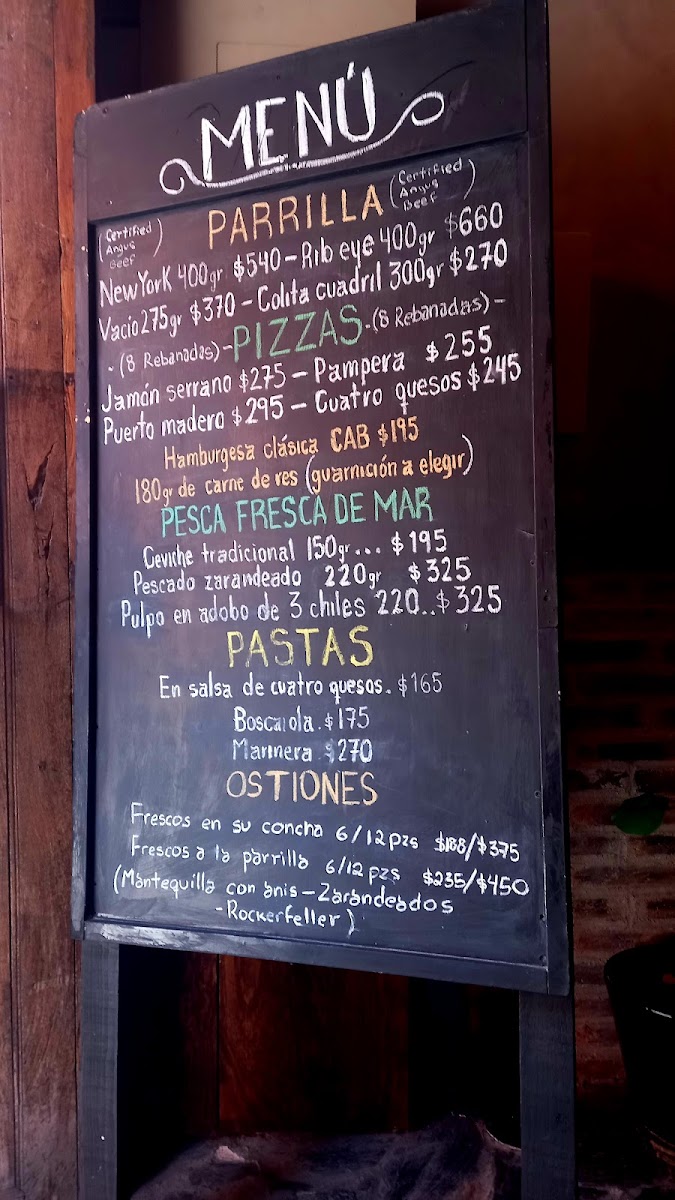 MENÚ
(Certified Angus Beef) PARRILLA (Certified Angus Beef)
New York 400gr $540 - Rib eye 400gr $660
Vacío 275gr $370 - Colita cuadril 300gr $270
- (8 Rebanadas) - PIZZAS - (8 Rebanadas) -
Jamón serrano $275 - Pampera $255
Puerto madero $295 - Cuatro quesos $245
Hamburgesa clásica CAB $195
180gr de carne de res (guarnición a elegir)
PESCA FRESCA DE MAR
Ceviche tradicional 150gr... $195
Pescado zarandeado 220gr $325
Pulpo en adobo de 3 chiles 220..$325
PASTAS
En salsa de cuatro quesos. $165
Boscaiola. $175
Marinera $270
OSTIONES
Frescos en su concha 6/12pzs $188/$375
Frescos a la parrilla 6/12pzs $235/$450
(Mantequilla con anis - Zarandeados
- Rockerfeller)